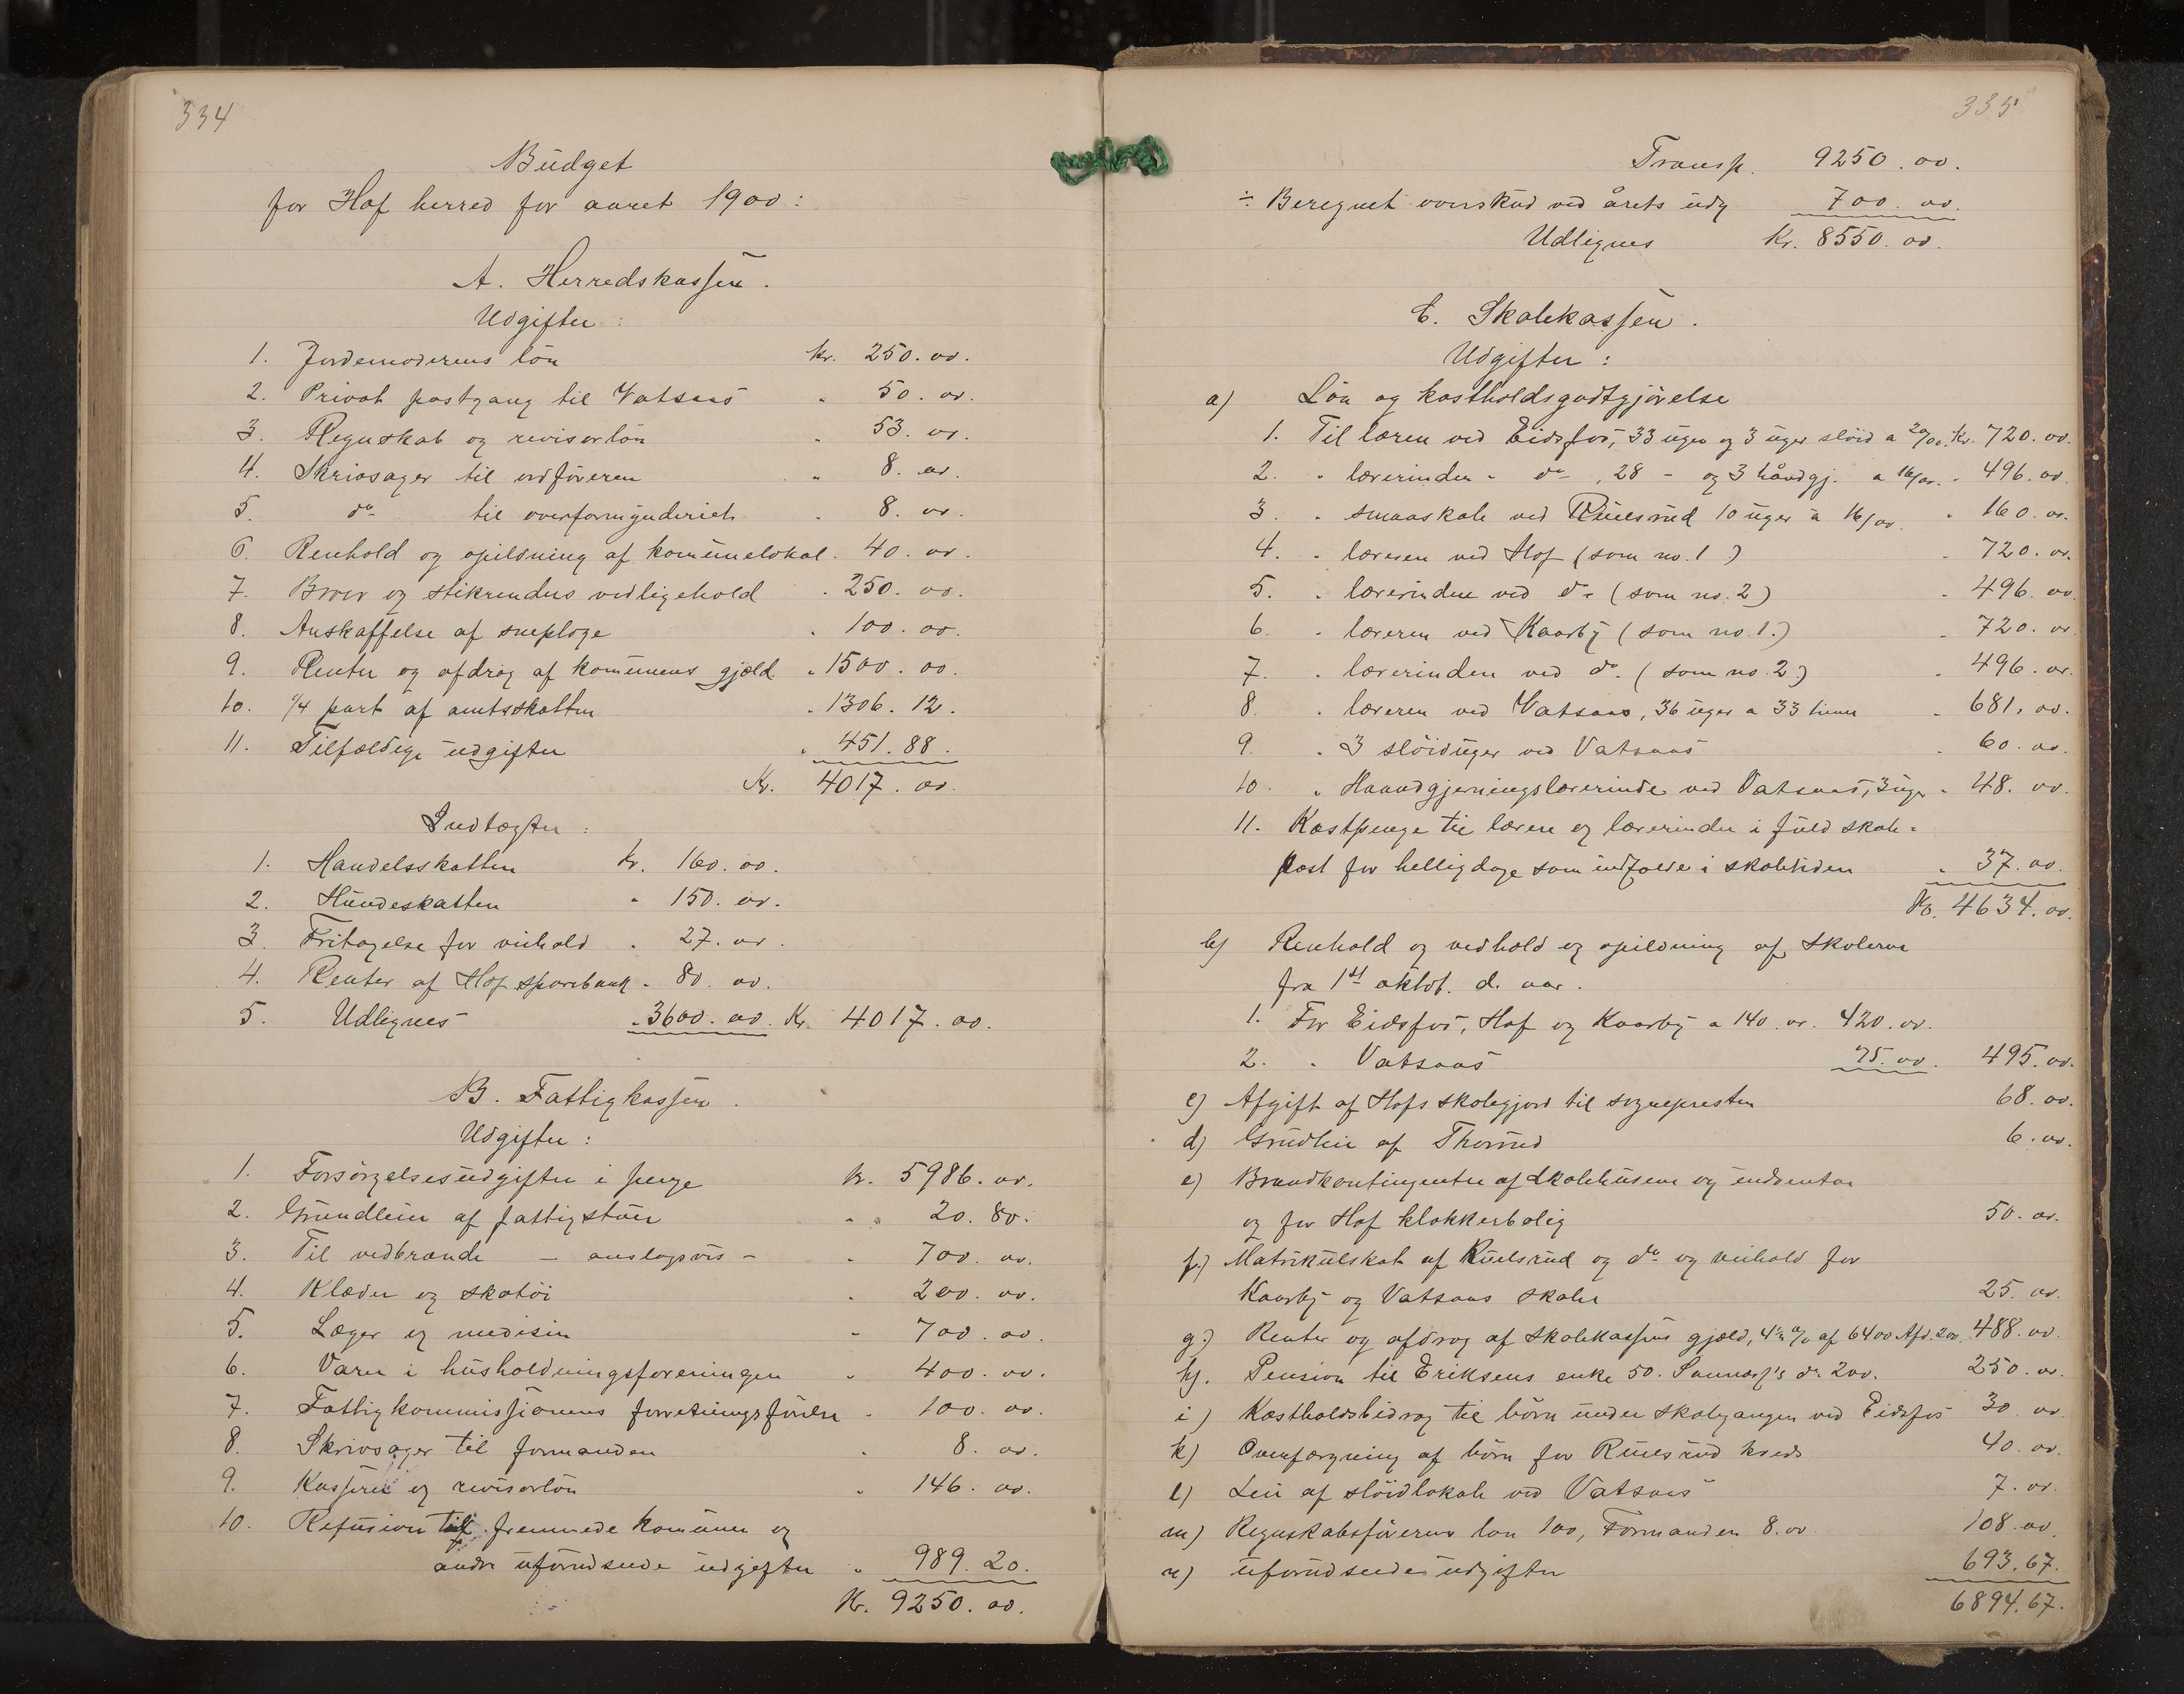 334
Budget
for Hof herred for aaret 1900:
A. Herredskassen.
Udgifter:
1. Jordemoderens løn kr. 250.00.
2. Privat postgang til Vatsaas " 50.00.
3. Regnskab og revisorløn " 53.00.
4. Skrivsager til ordføreren " 8.00.
5. do til overformynderiet " 8.00.
6. Renhold og opildning af komūnelokal. 40.00.
7. Broer og stikrenders vedligehold " 250.00.
8. Anskaffelse af sneploge " 100.00.
9. Renter og afdrag af komūnens gjæld " 1500.00.
10. 1/4 part af amtsskatten " 1306.12.
11. Tilfældige udgifter " 451.88.
Kr. 4017.00.
Indtægter:
1. Handelsskatten kr. 160.00.
2. Hundeskatten " 150.00.
3. Fritagelse for veihold " 27.00.
4. Renter af Hof sparebank " 80.00.
5. Udlignes " 3600.00. Kr. 4017.00.
B. Fattigkassen.
Udgifter:
1. Forsørgelsesudgifter i penge kr. 5986.00.
2. Grundleien af fattigstuer " " 20.80.
3. Til vedbrænde – anslagsvis – " 700.00.
4. Klæder og skotøi " 200.00.
5. Læger og medisin " 700.00.
6. Varer i husholdningsforeningen " 400.00.
7. Fattigkommissionens forretningsførelse " 100.00.
8. Skrivsager til formanden " 8.00.
9. Kasserer og revisorløn " 146.00.
10. Refusion til fremmede komūner og
andre uforudseede udgifter " 989.20.
Kr. 9250.00.
335
Transp. 9250.00.
÷ Beregnet overskud ved årets udg 700.00.
Udlignes Kr. 8550.00.
C. Skolekassen.
Udgifter:
a) Løn og kostholdsgodtgjørelse
1. Til læren ved Eidsfos, 33 uger og 3 uger sløid a 20/00. Kr. 720.00.
2. " lærerinden " do , 28 – og 3 håndgj. a 16/00. " 496.00.
3. " smaaskole ved Ruelsrud 10 uger à 16/00. " 160.00.
4. " læreren ved Hof (som no. 1) " 720.00.
5. " lærerinden ved do (som no. 2) " 496.00.
6. " læreren ved Kaarby (som no. 1.) " 720.00.
7. " lærerinden ved do. (som no. 2.) " 496.00.
8. " læreren ved Vatsaas, 36 uger a 33 timer " 681.00.
9. " 3 sløiduger ved Vatsaas " 60.00.
10. " Haandgjerningslærerinde ved Vatsaas, 3 uger " 48.00.
11. Kostpenge til lærere og lærerinder i fuld skole-
post for helligdage som indfalde i skoletiden " 37.00.
Kr. 4634.00.
b) Renhold og vedhold og opildning af skolerne
fra 1st oktob. d. aar.
1. For Eidsfos, Hof og Kaarby a 140.00. 420.00.
2. " Vatsaas 75.00. 495.00.
c) Afgift af Hofs skolegjord til sognepresten 68.00.
d) Grundleie af Thorrud 6.00.
e) Brandkontingenten af skolehusene og
og for Hof klokkerbolig 50.00.
f.) Matrikulskat af Ruelsrud og do og veihold for
Kaarby og Vatsaas skoler 25.00.
g.) Renter og afdrag af skolekassens gjæld, 4½ % af 6400 Afd. 200. 488.00.
h). Pension til Eriksens enke 50. do 200. 250.00.
i) Kostholdsbidrag til børn under skolegangen ved Eidsfos 30.00.
k) Overfærgning af børn for Ruelsrud kreds 40.00.
l) Leie af sløidlokale ved Vatsaas 7.00.
m) Regnskabsførerens løn 100, Formanden 8.00 108.00.
n) uforudseede udgifter 693.67.
6894.67.